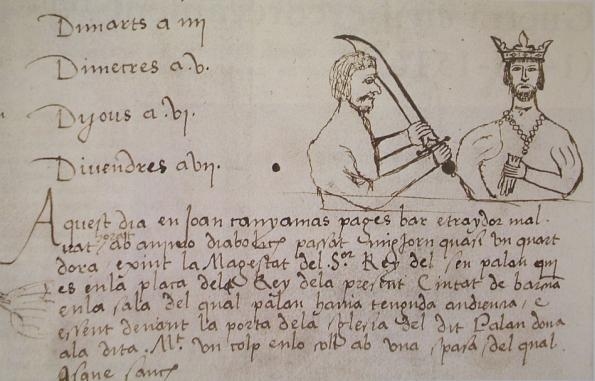 Dimarts a iiii
Dimecres a .v.
Dijous a .vi.
Divendres a vii.
Aquest dia en Joan canyamas pages bar e traydor mal-
vat ab animo diabolich passat mig jorn quasi un quart
dora, exint la Magestat del S.or Rey del seu palau qui
es en la plaça del Rey dela present Ciutat de barcna
en la sala del qual palau havia tenguda audiencia, e
essent devant la porta dela sglesia del dit Palau dona
ala dita .Mt. un colp en lo coll ab una spasa del qual